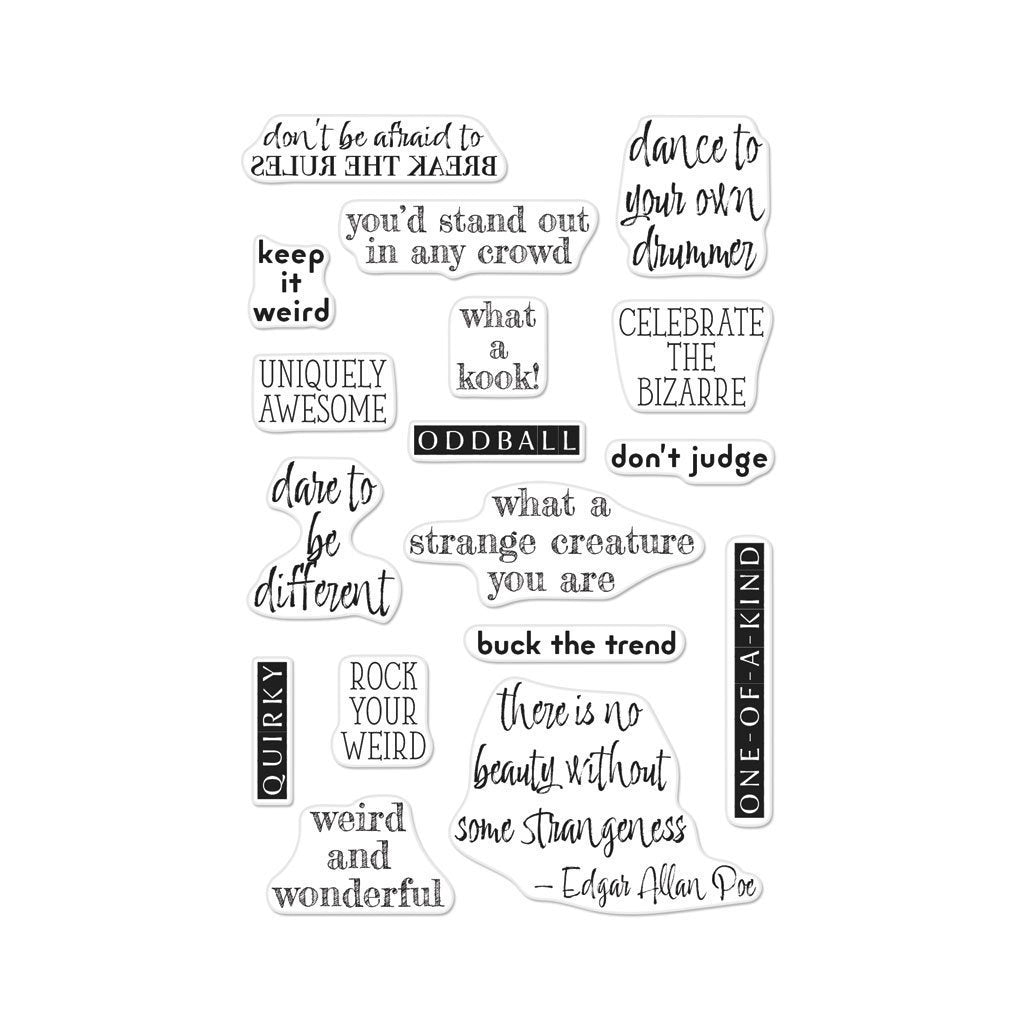 don't be afraid to
BREAK THE RULES
dance to
your own
drummer
you'd stand out
in any crowd
keep
it
weird
what
a
kook!
CELEBRATE
THE
BIZARRE
UNIQUELY
AWESOME
ODDBALL
don't judge
dare to
be
different
what a
strange creature
you are
ONE-OF-A-KIND
buck the trend
QUIRKY
ROCK
YOUR
WEIRD
there is no
beauty without
some strangeness
– Edgar Allan Poe
weird
and
wonderful